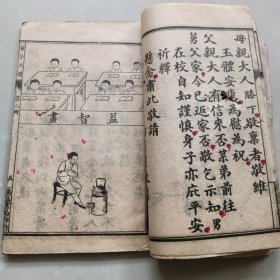 母親大人膝下敬稟者敬維
玉體安康為慰為祝
父親大人有信來否某弟前往
舅父家今已返家否敬乞示知男
在校自知謹慎身子亦庇平安
祈釋
懸念肅此敬請
畫智益